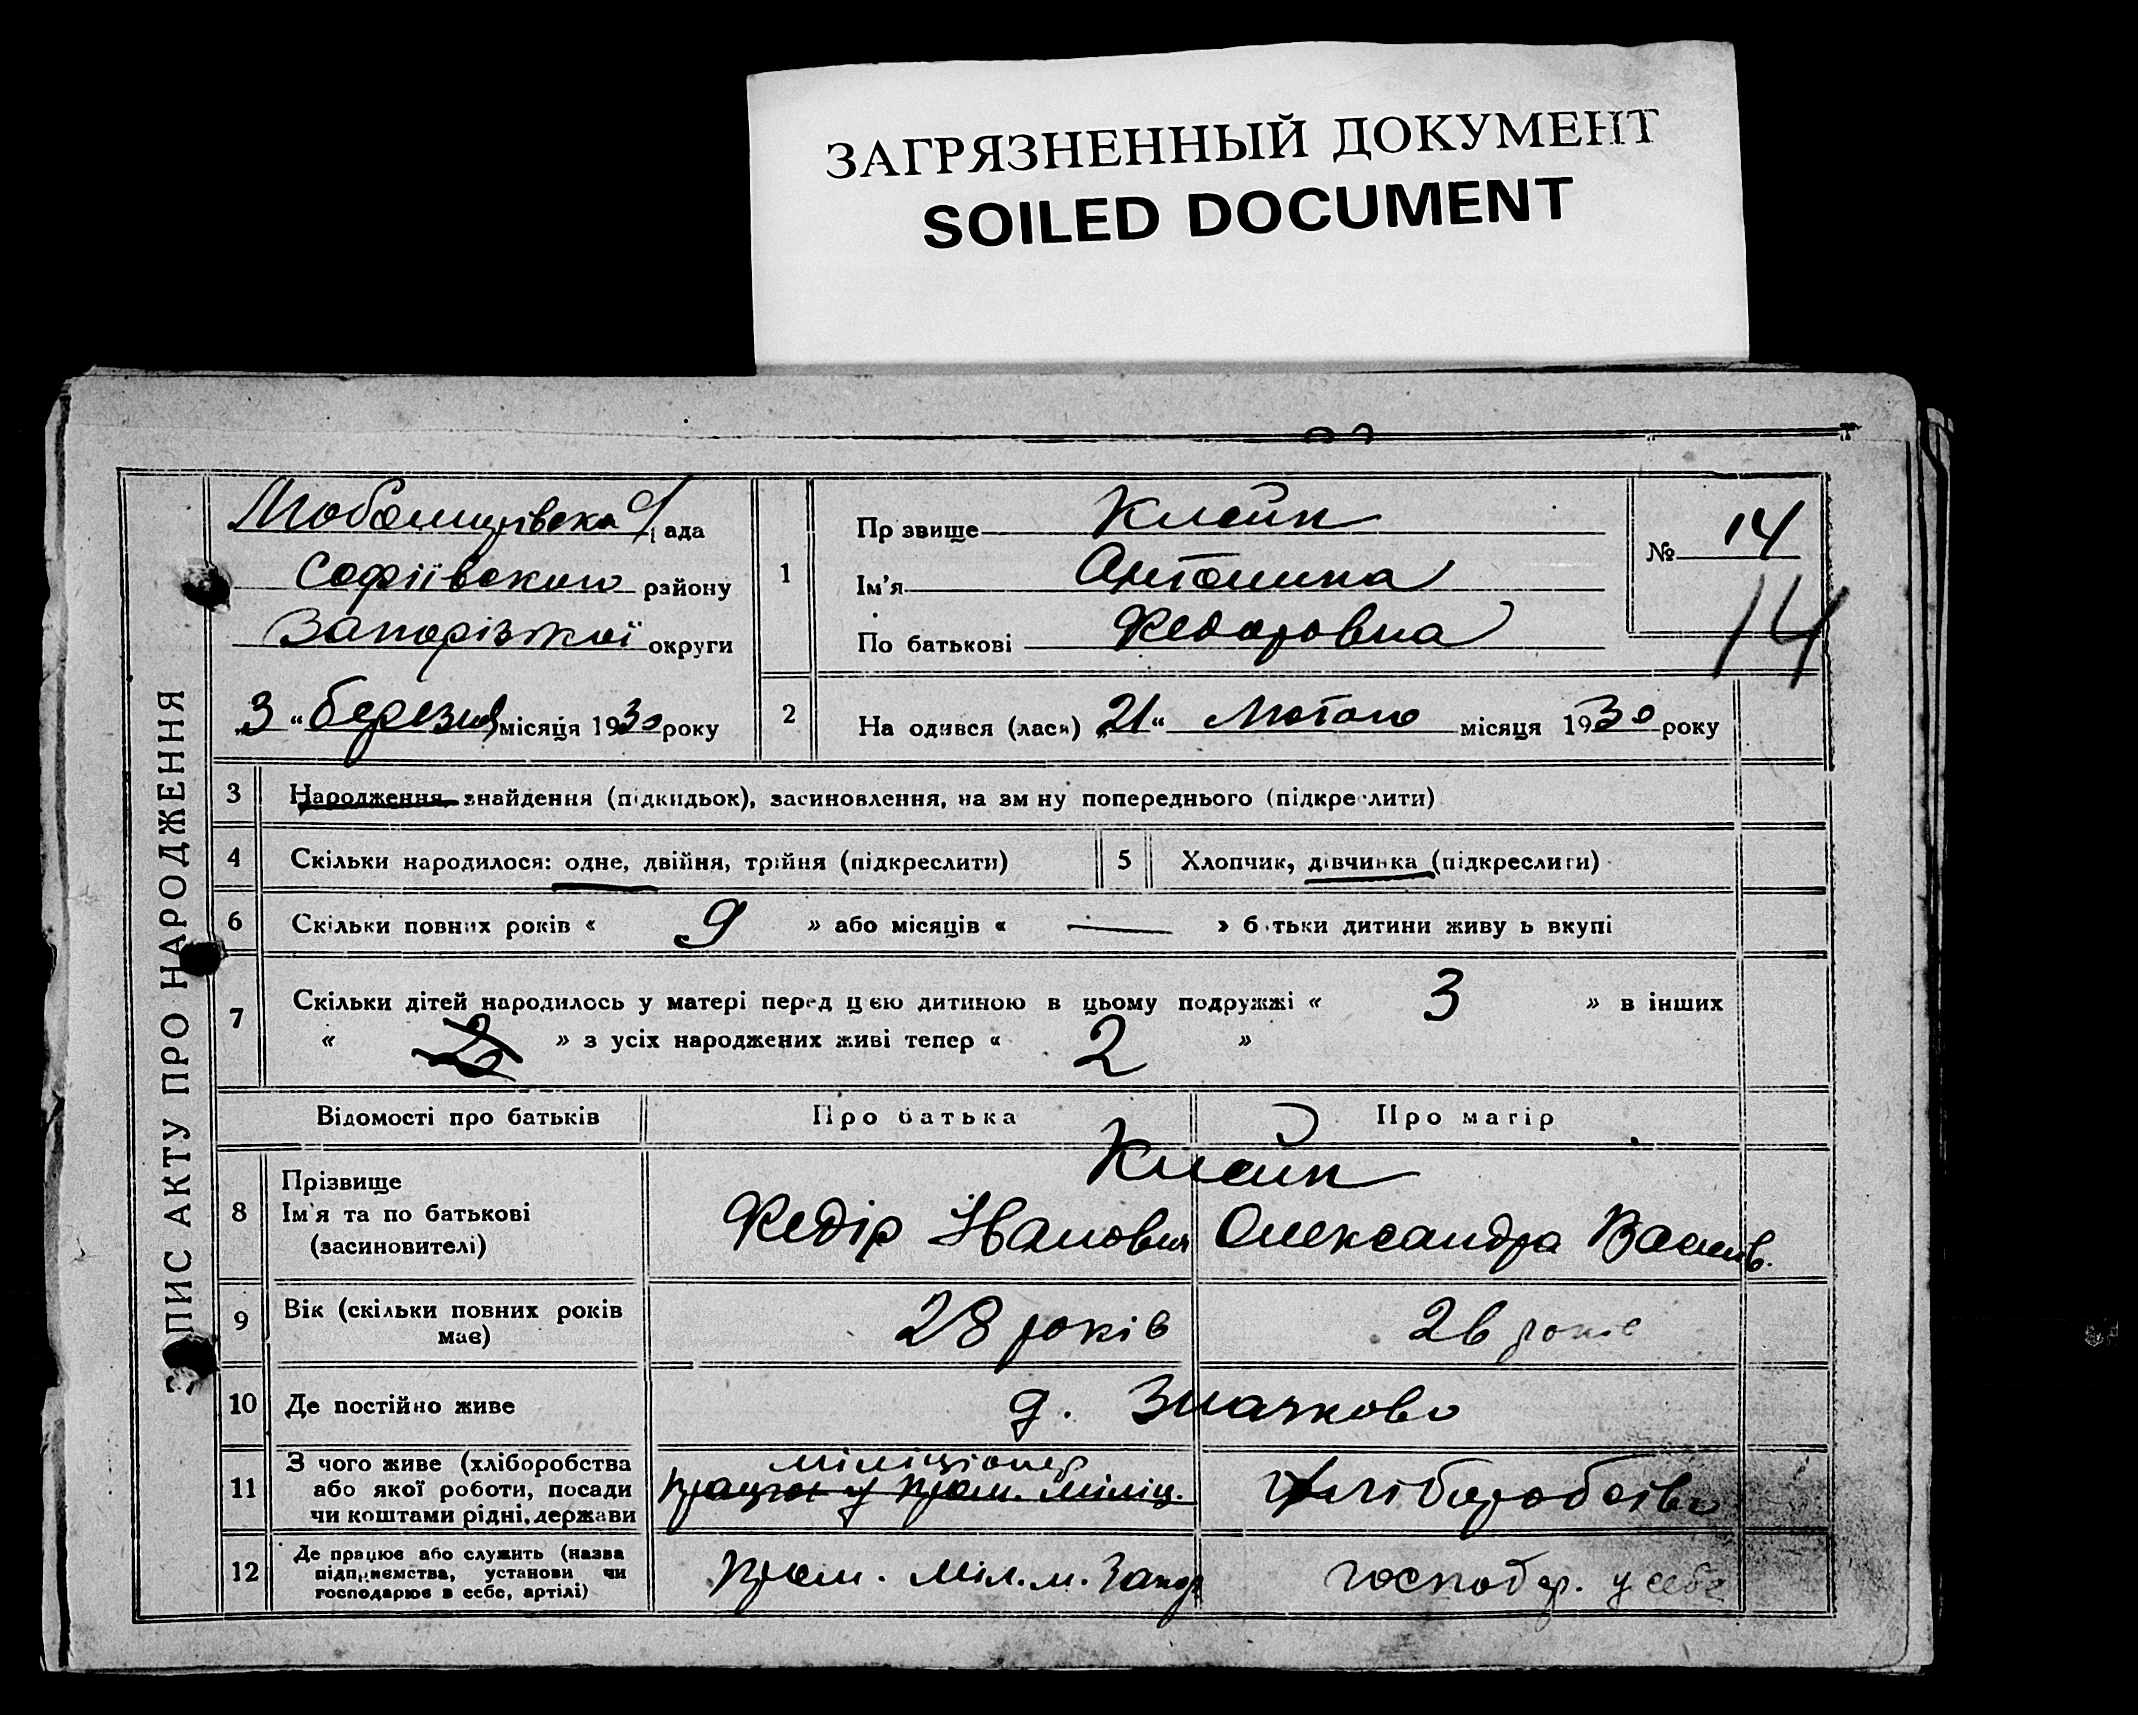 ЗАГРЯЗНЕННЫЙ ДОКУМЕНТ
SOILED DOCUMENT
ПИС АКТУ ПРО НАРОДЖЕННЯ
Любомирівська с/ ада
Софіївського району
Запорізької округи
„3“ березня місяця 1930 року
1
Пр звище Клейн
Ім'я Антонина
По батькові Федоровна
№ 14
14
2 На одився (лася) „21“ Лютого місяця 1930 року
3 Народження, знайдення (підкидьок), засиновлення, на зм ну попереднього (підкре лити)
4 Скільки народилося: одне, двійня, трійня (підкреслити) 5 Хлопчик, дівчинка (підкреслити)
6 Скільки повних років « 9 » або місяців « — » б тьки дитини живу ь вкупі
7 Скільки дітей народилось у матері перед цією дитиною в цьому подружжі « 3 » в інших
« » з усіх народжених живі тепер « 2 »
Відомості про батьків Про батька Про матір
8 Прізвище
Ім'я та по батькові
(засиновителі)
Клейн
Федір Іванович Олександра Васил.
9 Вік (скільки повних років має) 28 років 26 років
10 Де постійно живе д. Значково
11 З чого живе (хліборобства
або якої роботи, посади
чи коштами рідні, держави
міліціонер
працює у пром. міліц.
хліборобство
12 Де працює або служить (назва
підприємства, установи чи
господарює в себе, артілі)
Пром. міл. м. Запор господар. у себе